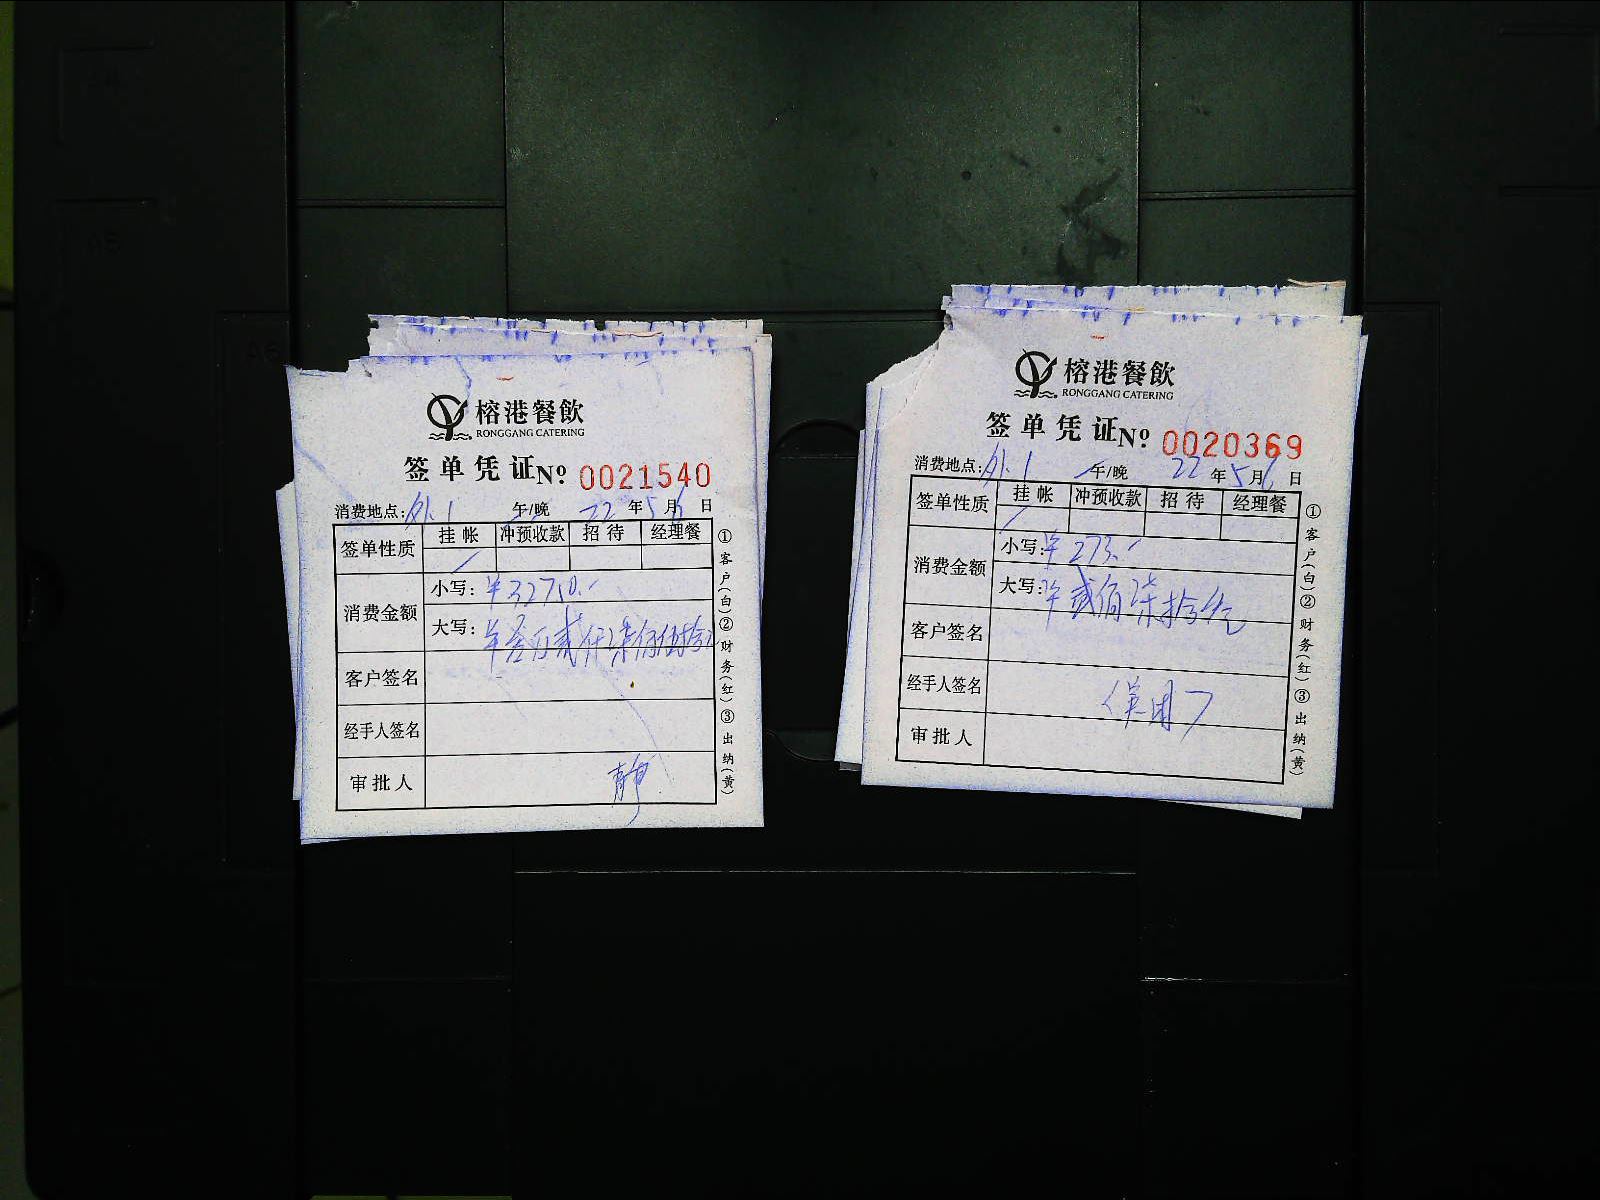 榕港餐飲
RONGGANG CATERING
签单凭证 Nº 0021540
消费地点: 外1 午/晚 22 年 5 月 6 日
签单性质 挂帐 冲预收款 招待 经理餐
消费金额
小写: ¥32750.-
大写: 叁万贰仟柒佰伍拾
客户签名
经手人签名
审批人 静
①客户(白)②财务(红)③出纳(黄)
榕港餐飲
RONGGANG CATERING
签单凭证 Nº 0020369
消费地点: 外1 午/晚 22 年 5 月 6 日
签单性质 挂帐 冲预收款 招待 经理餐
消费金额
小写: ¥273.-
大写: 贰佰柒拾叁元
客户签名
经手人签名
审批人
①客户(白)②财务(红)③出纳(黄)
A5
A6